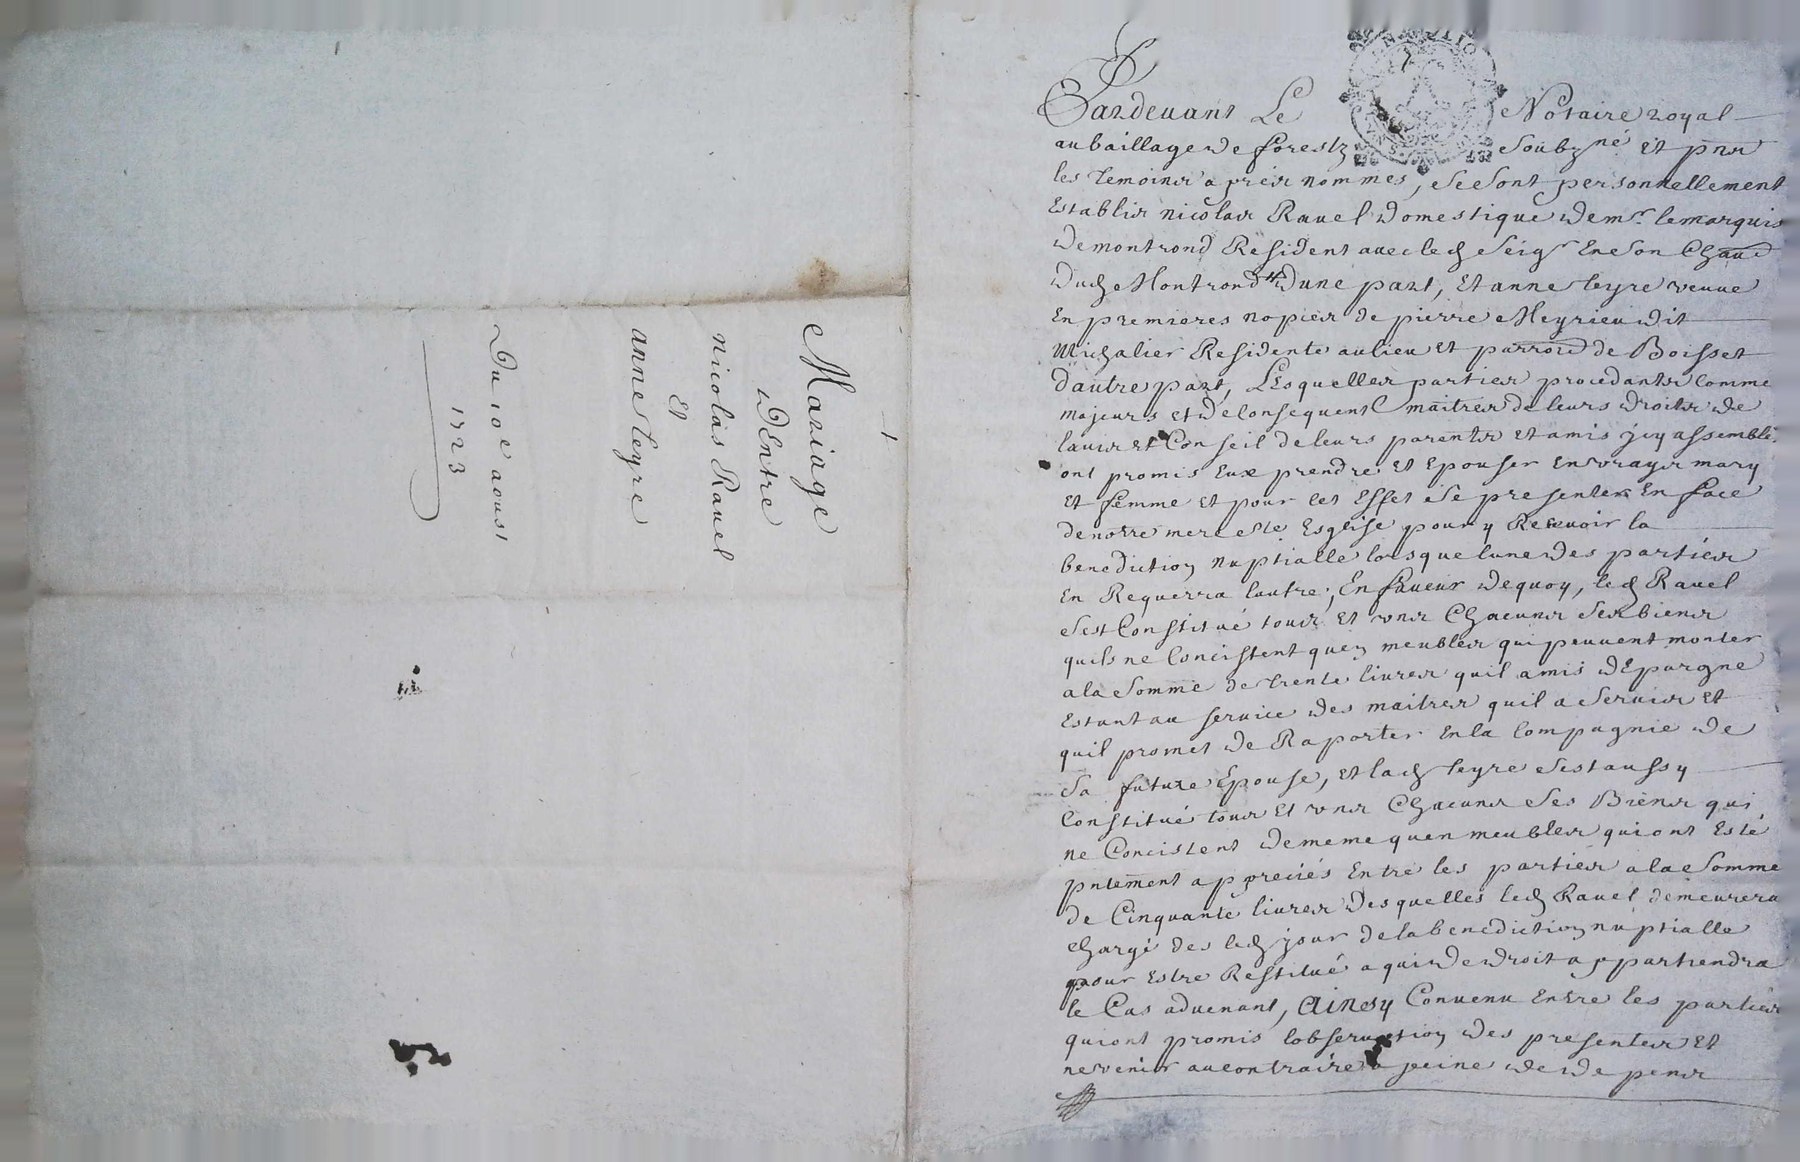 Mariage
DEntre
nicolas Ravel
Et
anne teyre
Du 10e aoust
1723
Pardevant Le Notaire royal
au baillage de forestz soubzné Et pnts
les temoins apres nommes, se sont personnellement
Establis nicolas Ravel domestique de mr. lemarquis
de montrond Resident avec led Seigr En son Chau
dud Montrond dune part, Et anne teyre veuve
En premieres nopces de pierre Meyrieu dit
Michalier Residente au lieu Et parroisse de Boisset
dautre part, Lesquelles parties procedants Comme
majeurs et de Consequent maitres de leurs droits de
lavis et Conseil de leurs parents et amis jcy assemblé
ont promis Eux prendre Et Epouser En vrays mary
Et femme Et pour cet Effet se presenter En face
de notre mere Ste Esglise pour y Recevoir la
benediction nuptialle lorsque lune des parties
En Requerra lautre; En faveur dequoy, led Ravel
sest Constitué tous Et uns Chacuns ses biens
quils ne Concistent quen meubles qui peuvent monter
a la somme de trente livres quil a mis dEpargne
Estant au service des maitres quil a servis Et
quil promet de Raporter En la Compagnie de
sa future Epouse, Et lad teyre sest aussy
Constitué tous Et uns Chacuns ses Biens qui
ne Concistent de meme quen meubles qui ont Esté
pntement appreciés Entre les parties a la somme
de Cinquante livres desquelles led Ravel demeurera
Chargé des led jour de la benediction nuptialle
pour Estre Restitué a qui de droit appartiendra
le Cas advenant, Ainsy Convenu Entre les parties
qui ont promis lobservation des presentes Et
ne venir au contraire a peine de de pens